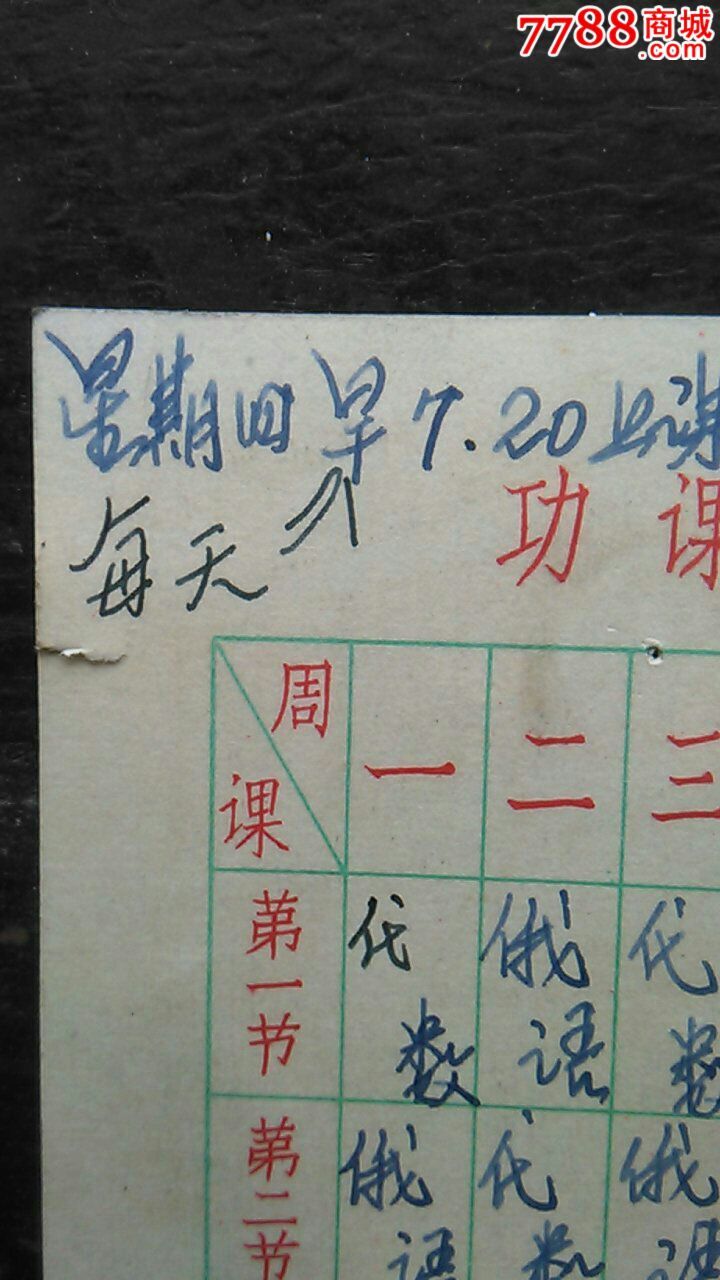 7788商城
.com
星期四早7.20上课
每天
功课
周 一 二 三
课
第一节 代数 俄语 代数
第二节 俄语 代数 俄语